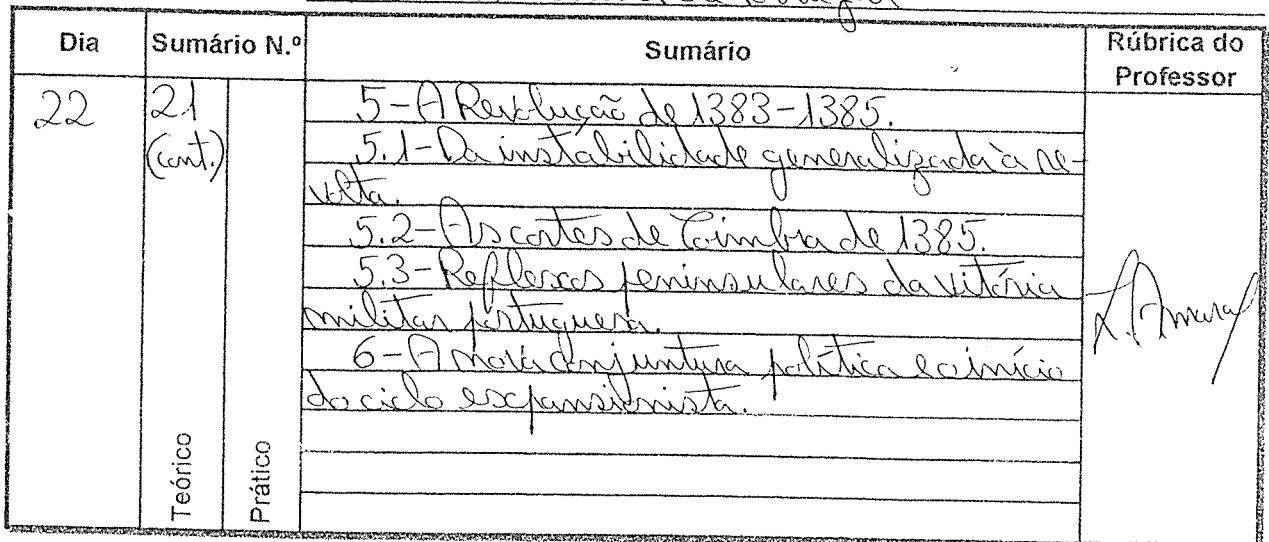 Dia Sumário N.º Sumário Rúbrica do Professor
22 21 (cont.)
5-A Revolução de 1383-1385.
5.1-Da instabilidade generalizada à re-
volta.
5.2-As cortes de Coimbra de 1385.
5.3-Reflexos peninsulares da vitória
militar portuguesa.
6-A nova conjuntura política e o início
do ciclo expansionista.
L. Amaral
Teórico
Prático